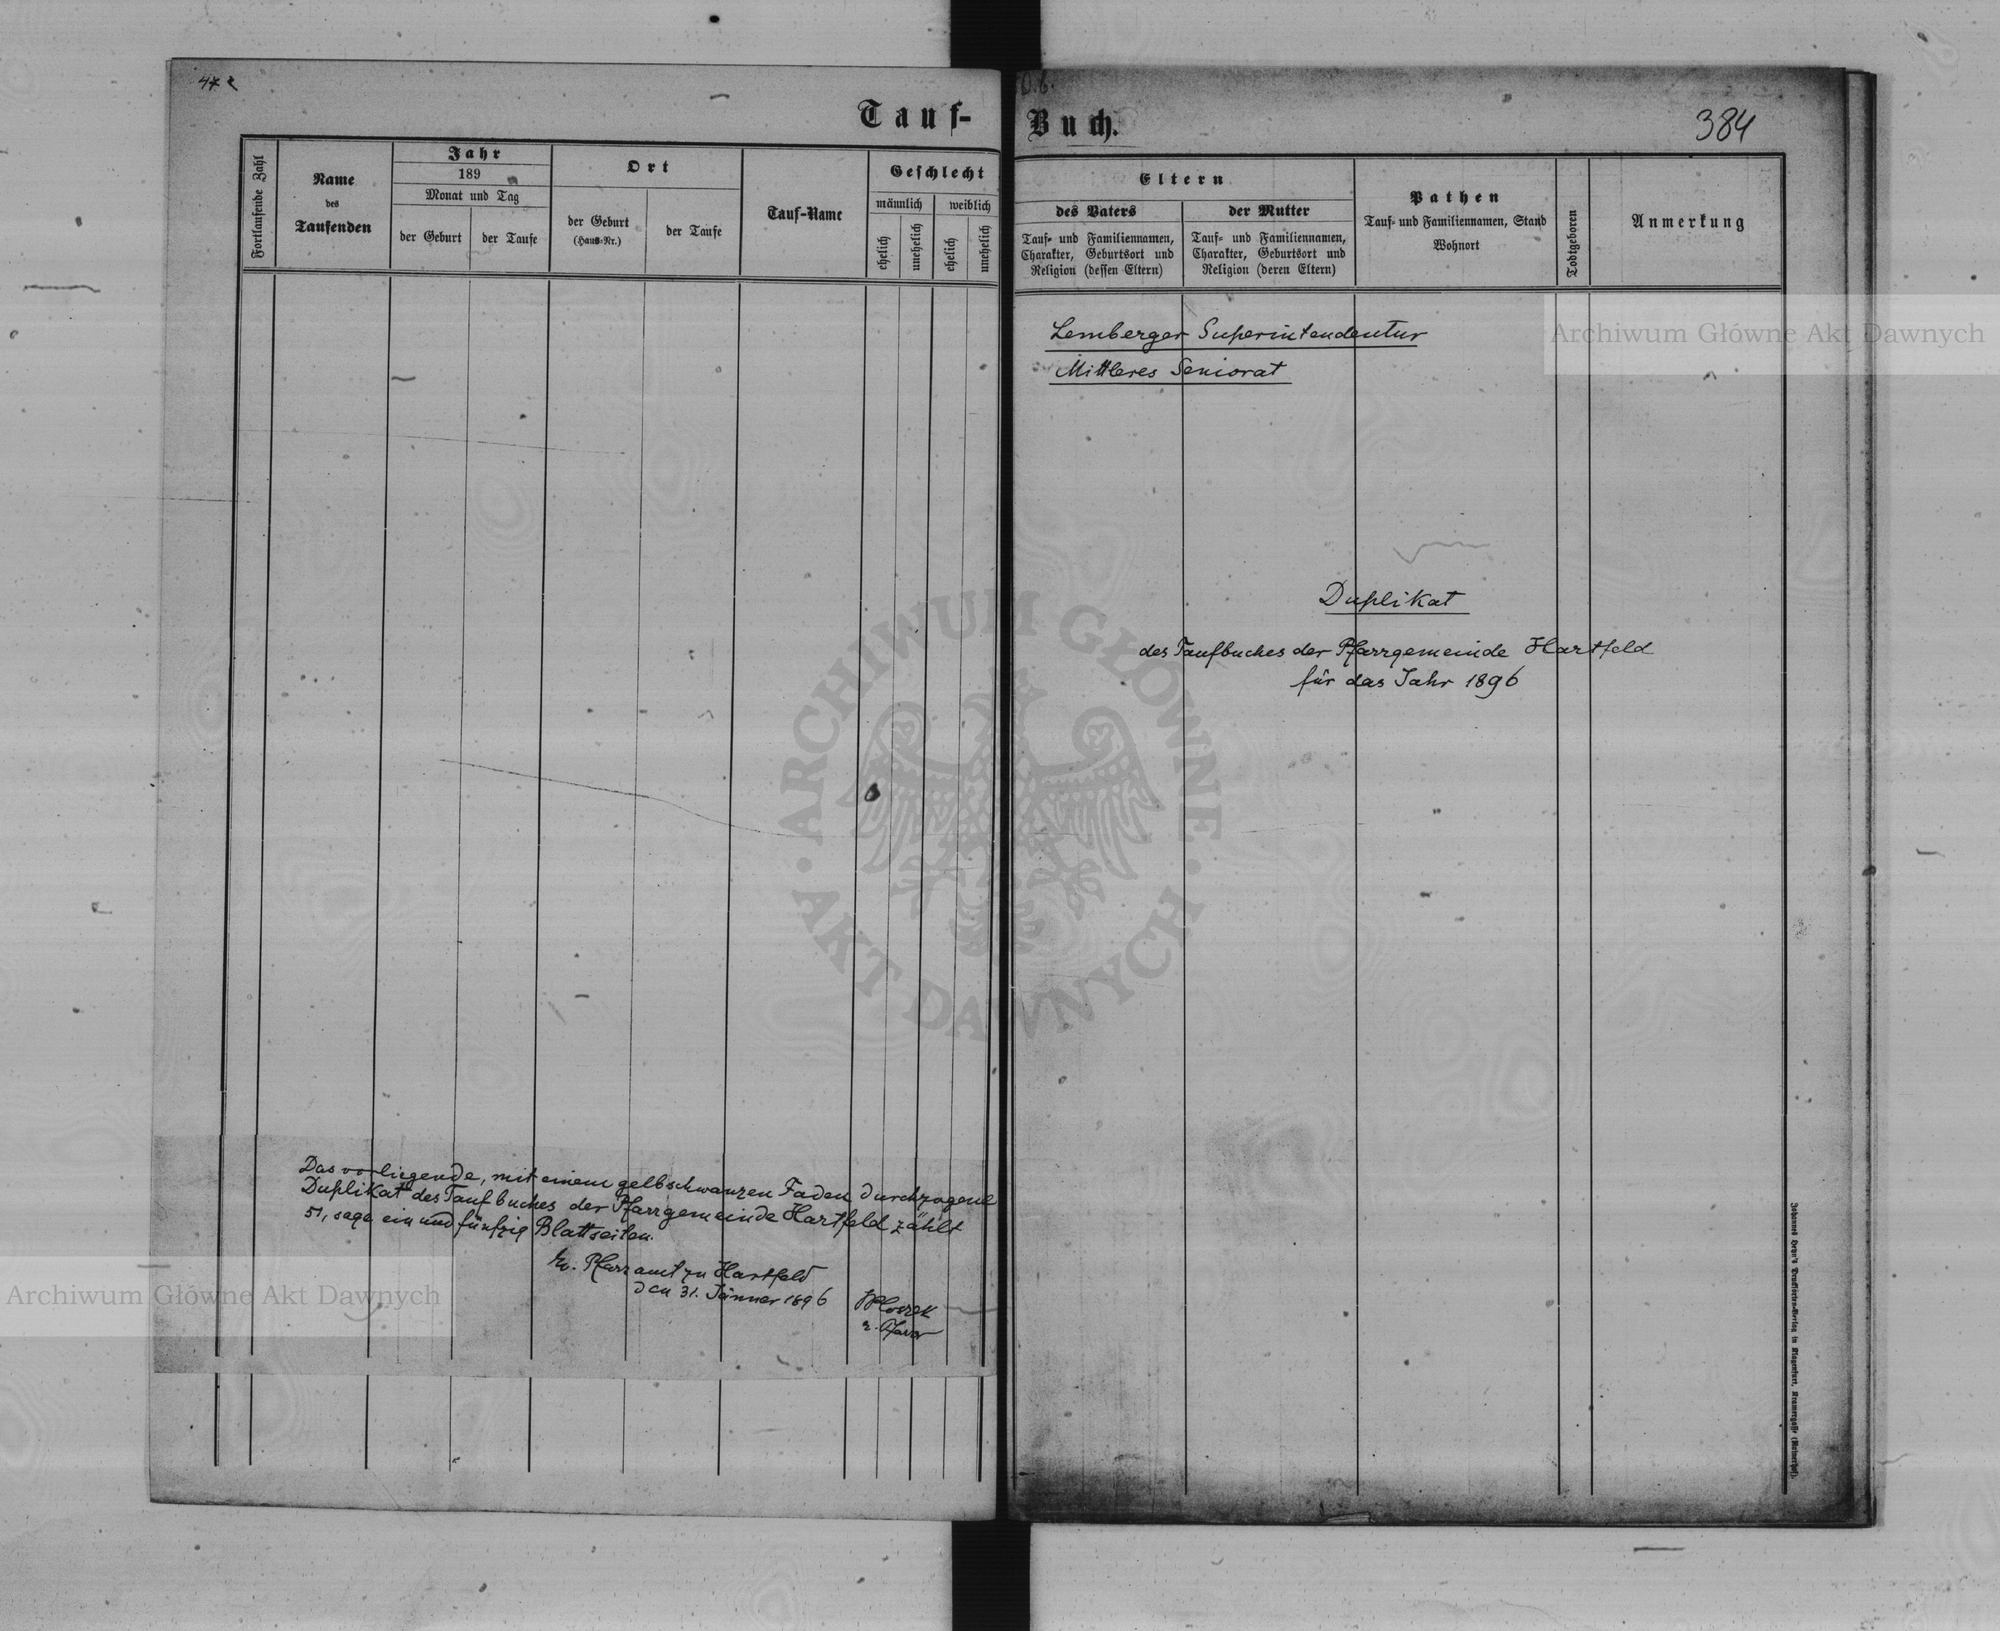 Tauf-
Fortlaufende Zahl
Name
des
Taufenden
Jahr
189
Monat und Tag
der Geburt
der Taufe
Ort
der Geburt
(Haus-Nr.)
der Taufe
Tauf-Name
Geschlecht
männlich
weiblich
ehelich
unehelich
ehelich
unehelich
Das vorliegende, mit einem gelbschwarzen Faden durchzogene
Duplikat des Taufbuches der Pfarrgemeinde Hartfeld zählt
51, sage ein und fünfzig Blattseiten.
Ev. Pfarramt zu Hartfeld
den 31. Jänner 1896
Pfarrer
Buch.
384
Eltern
des Vaters
Tauf- und Familiennamen,
Charakter, Geburtsort und
Religion (dessen Eltern)
der Mutter
Tauf- und Familiennamen,
Charakter, Geburtsort und
Religion (deren Eltern)
Pathen
Tauf- und Familiennamen, Stand
Wohnort
Todtgeboren
Anmerkung
Lemberger Superintendentur
Mittleres Seniorat
Duplikat
des Taufbuches der Pfarrgemeinde Hartfeld
für das Jahr 1896
Archiwum Główne Akt Dawnych
Archiwum Główne Akt Dawnych
ARCHIWUM GŁÓWNE
AKT DAWNYCH